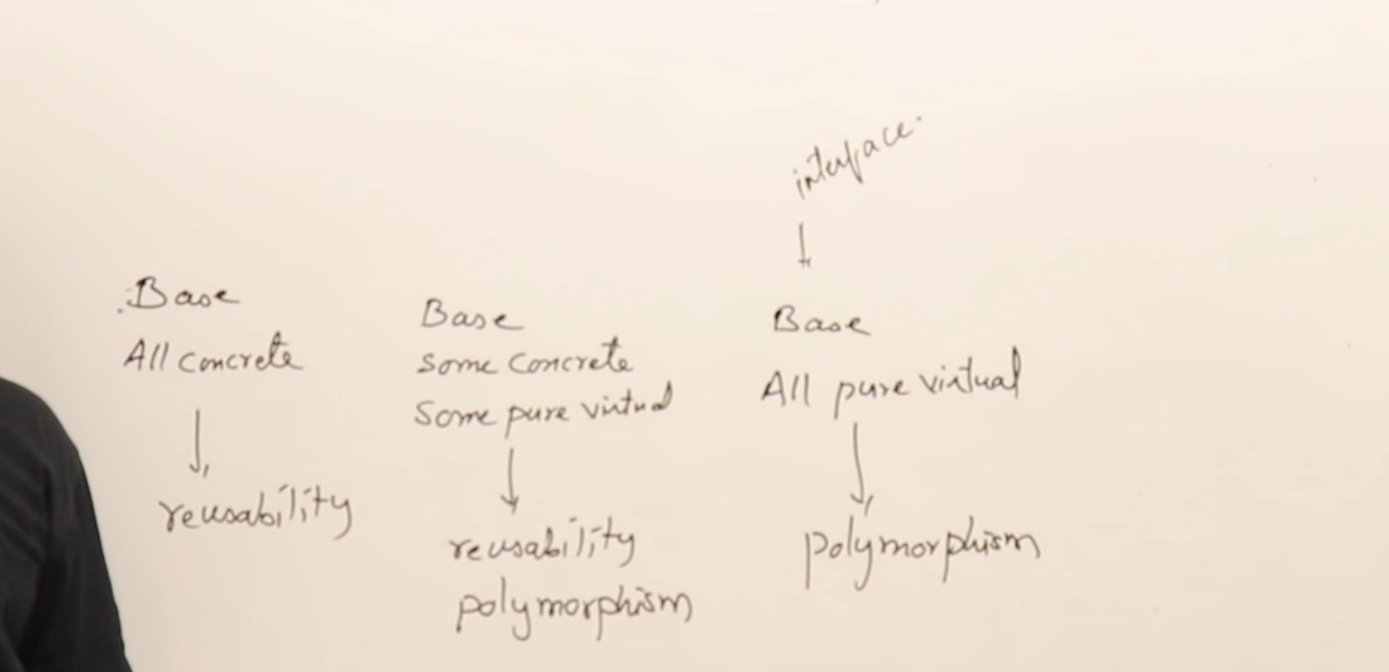 Base
All concrete
reusability
Base
some concrete
Some pure virtual
reusability
polymorphism
interface
Base
All pure virtual
polymorphism